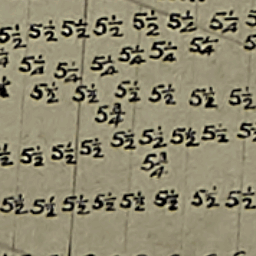 5½ 5½ 5½ 5½ 5½ 5½ 5¼
5¼ 5¼ 5¼ 5¼ 5¼ 5¼
5½ 5½ 5½ 5½ 5½ 5½
5¾
5½ 5½ 5½ 5½ 5½ 5½ 5½
5¾
5½ 5½ 5½ 5½ 5½ 5½ 5½ 5½